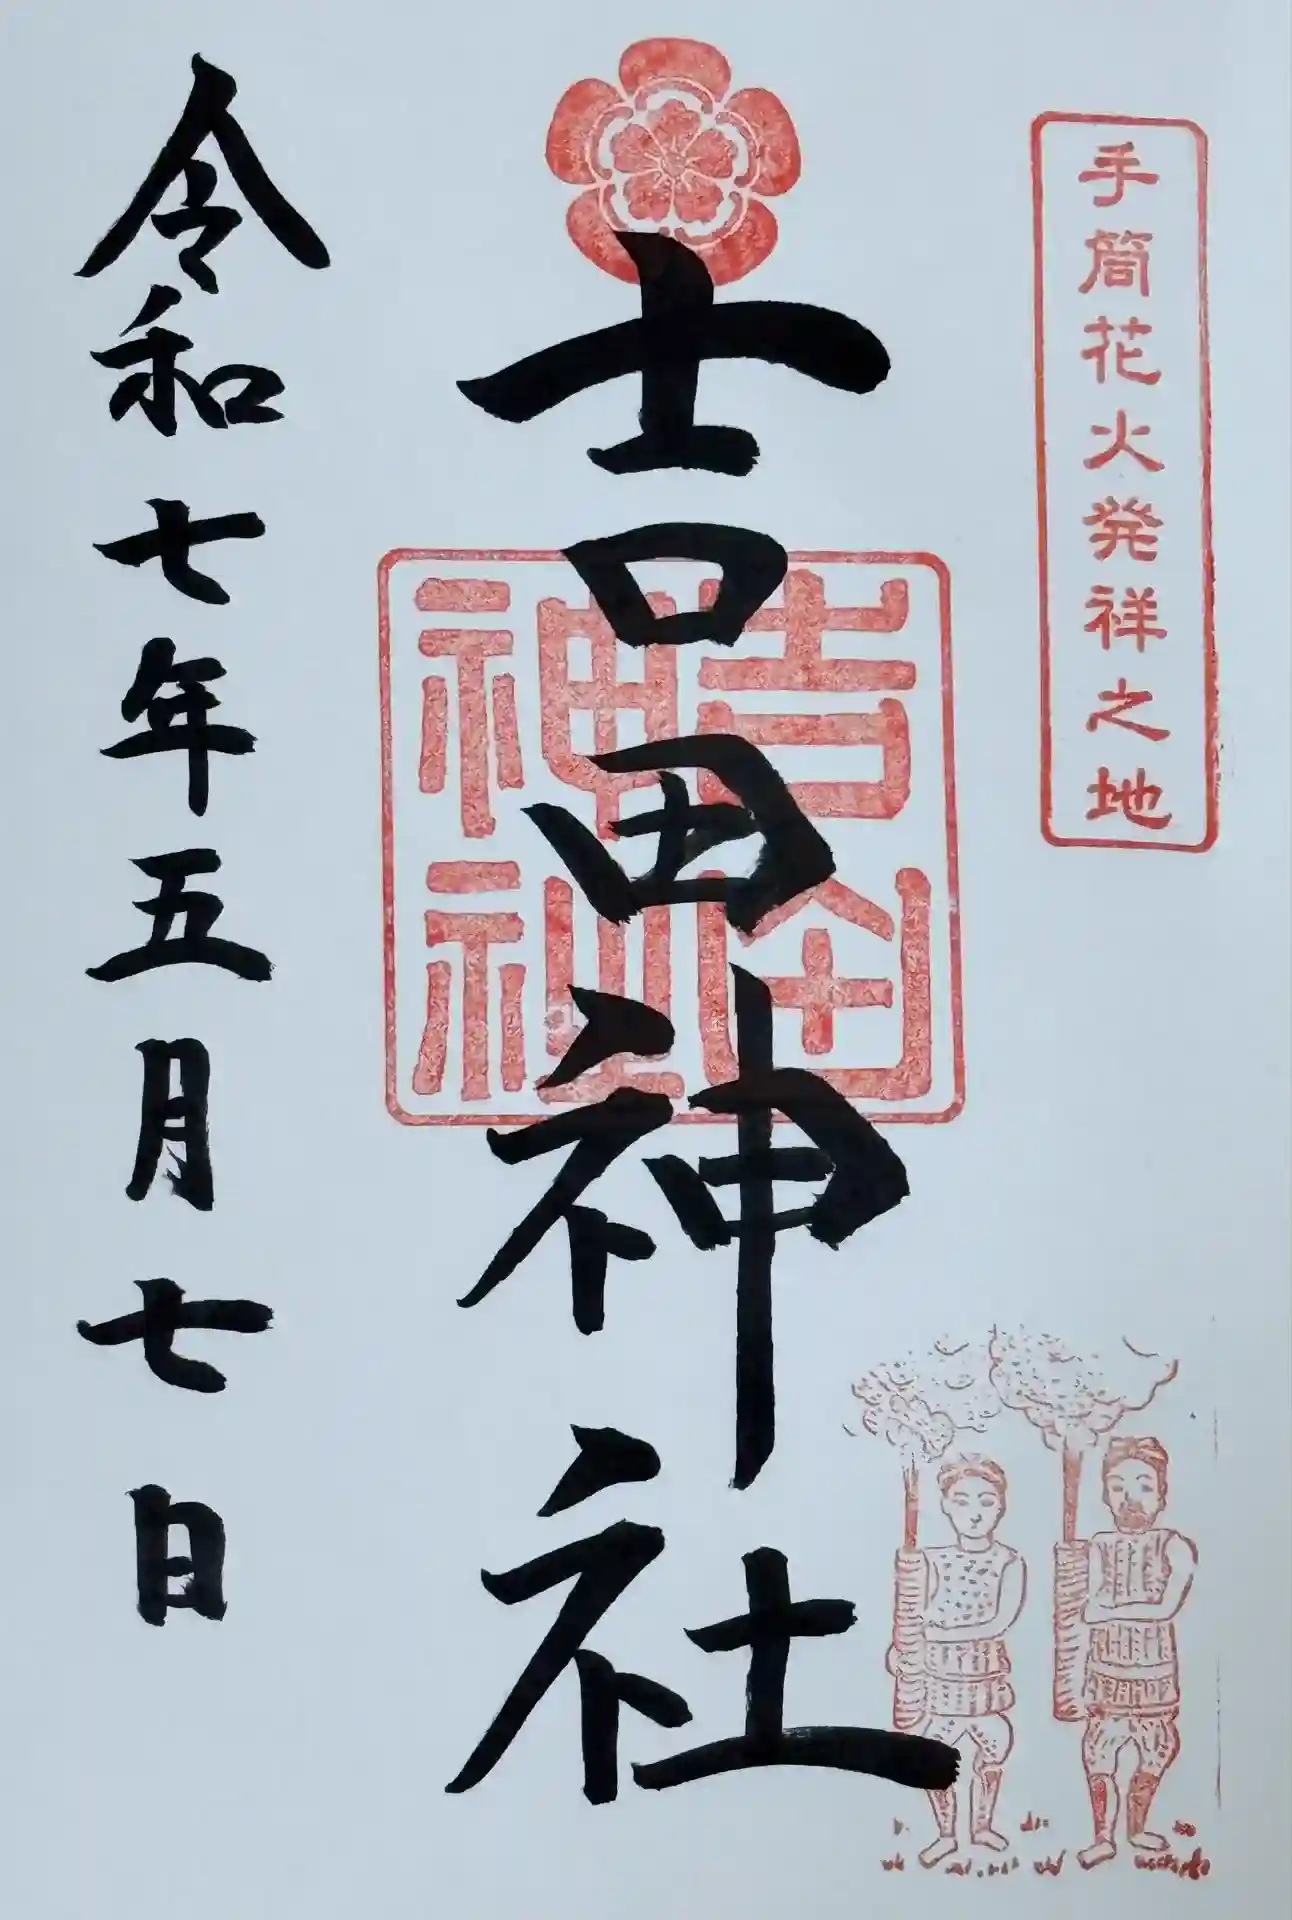 手筒花火発祥之地
吉田神社
吉田
神社
令和七年五月七日